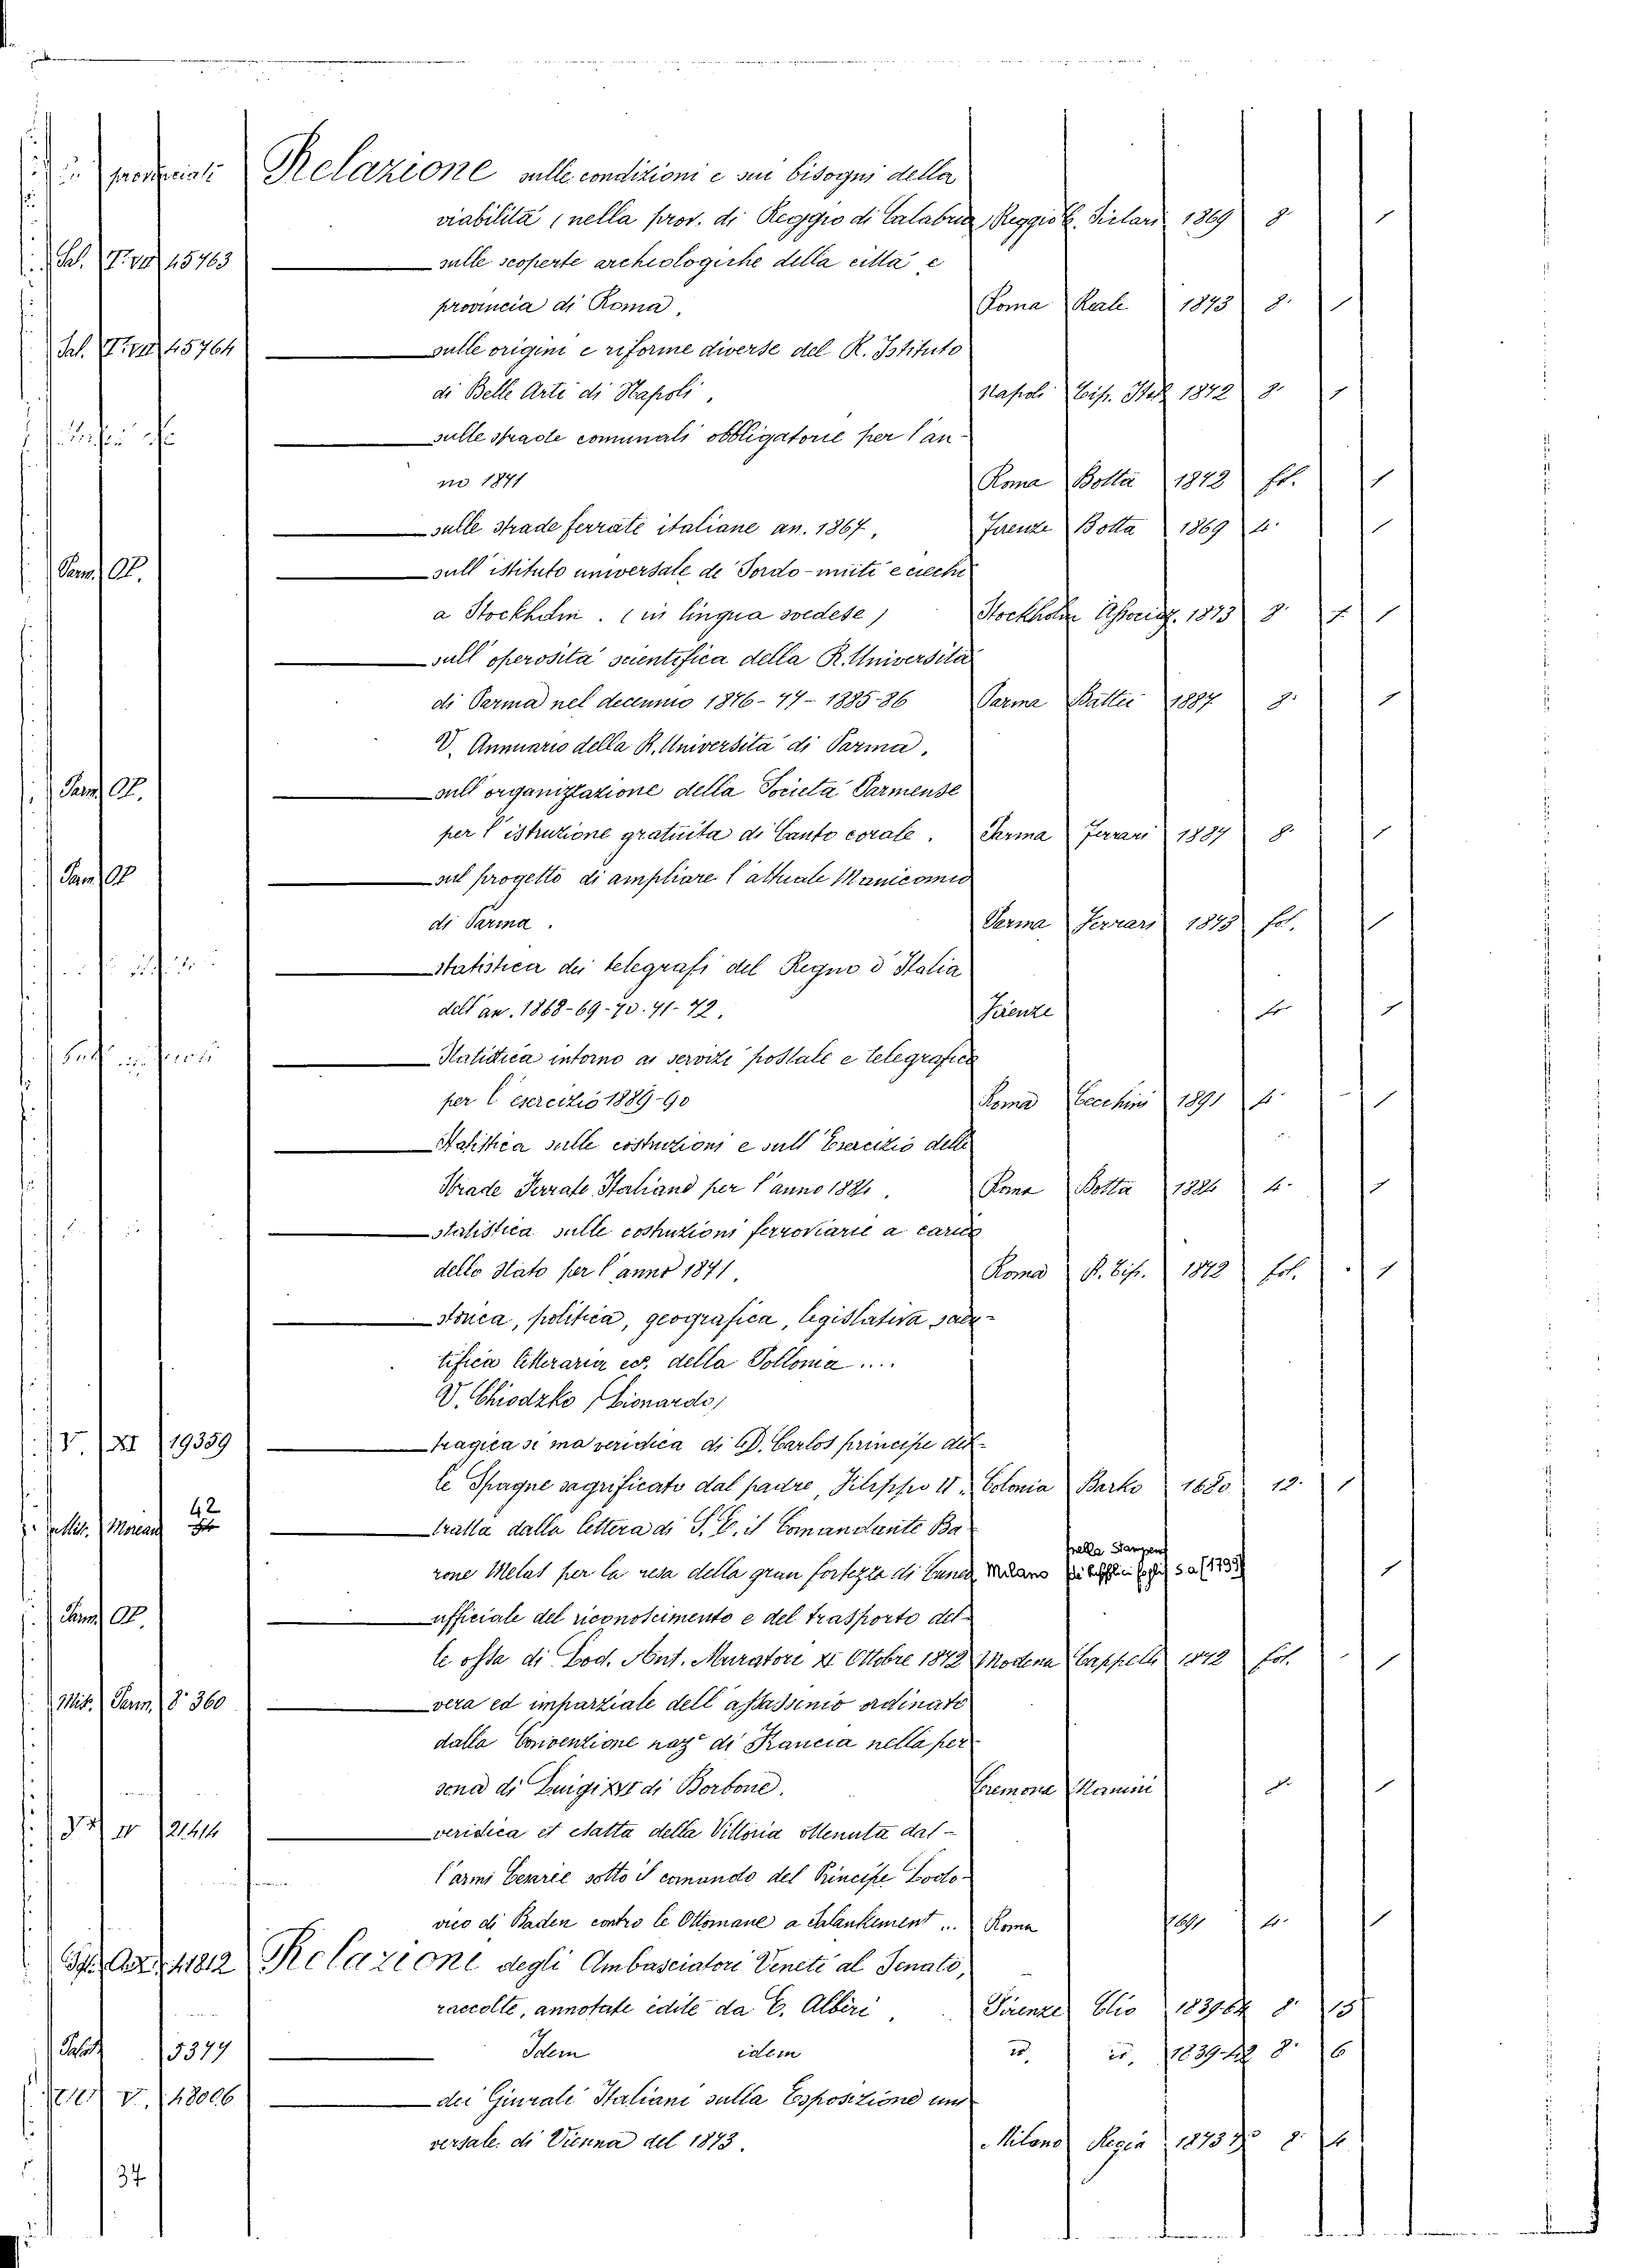 Relazione sulle condizioni e sui bisogni della
viabilità (nella prov. di Reggio di Calabria Reggio C. Siclari 1869 8 1
Sal. 45763 sulle scoperte archeologiche della città e
provincia di Roma. Roma Reale 1873 8. 1
Sal. 45764 sulle origini e riforme diverse del R. Istituto
di Belle Arti di Napoli, Napoli Tip. Ital. 1872 8. 1
sulle strade comunali obbligatorie per l'an-
no 1871 Roma Botta 1872 fl. 1
sulle strade ferrate italiane an. 1867, Firenze Botta 1869 4. 1
Parm. Op. sull'istituto universale de' Sordo-muti e ciechi
a Stockholm. (in lingua svedese) Stockholm Associaz. 1873 8. 1
sull'operosità scientifica della R. Università
di Parma nel decennio 1876-77-1885-86 Parma Battei 1887 8. 1
V. Annuario della R. Università di Parma.
Parm. Op. sull'organizzazione della Società Parmense
per l'istruzione gratuita di Canto corale. Parma Ferrari 1887 8. 1
Parm. Op. sul progetto di ampliare l'attuale Manicomio
di Parma. Parma Ferrari 1873 fol. 1
statistica dei telegrafi del Regno d'Italia
dell'an. 1868-69-70-71-72. Firenze 4 1
Statistica intorno ai servizi postale e telegrafico
per l'esercizio 1889-90 Roma Cecchini 1891 4. 1
Statistica sulle costruzioni e sull'Esercizio delle
Strade Ferrate Italiane per l'anno 1884. Roma Botta 1886 4. 1
statistica sulle costruzioni ferroviarie a carico
dello Stato per l'anno 1871. Roma R. Tip. 1872 fol. 1
storica, politica, geografica, legislativa scien-
tifica letteraria ecc. della Pollonia ....
V. Chiodzko (Lionardo)
V. XI 19359 tragica sì ma veridica di D. Carlos principe del-
le Spagne sagrificato dal padre, Filippo II. Colonia Barko 1680 12. 1
Moreau 42 tratta dalla lettera di S. E. il Comandante Ba-
rone Melas per la resa della gran fortezza di Cuneo Milano nella Stamperia s.a. (1799) 1
Parm. Op. ufficiale del riconoscimento e del trasporto del-
le ossa di Lod. Ant. Muratori 21 Ottobre 1872 Modena Cappelli 1872 fol. 1
Mis. Parm. 8° 360 vera ed imparziale dell'assassinio ordinato
dalla Convenzione naz.e di Francia nella per-
sona di Luigi XVI di Borbone. Cremona Manini 8. 1
IV 21414 veridica et esatta della Vittoria ottenuta dal-
l'armi Cesaree sotto il comando del Principe Lodo-
vico di Baden contro le Ottomane a Salankement ... Roma 1691 4. 1
41812 Relazioni degli Ambasciatori Veneti al Senato,
raccolte, annotate edite da E. Alberi, Firenze Clio 1839-64 8. 15
Palat. 3377 Idem idem id. id. 1839-42 8. 6
V. 48006 dei Giurati Italiani sulla Esposizione uni-
versale di Vienna del 1873. Milano Regia 1873 8. 4
37